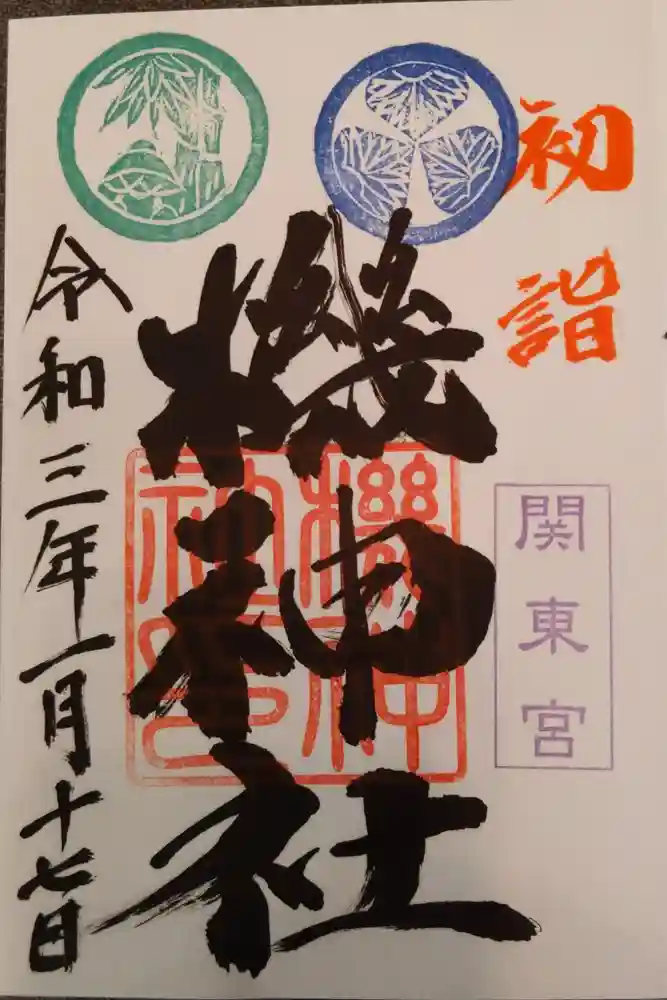 初詣
関東宮
機神社
機神社印
令和三年一月十七日